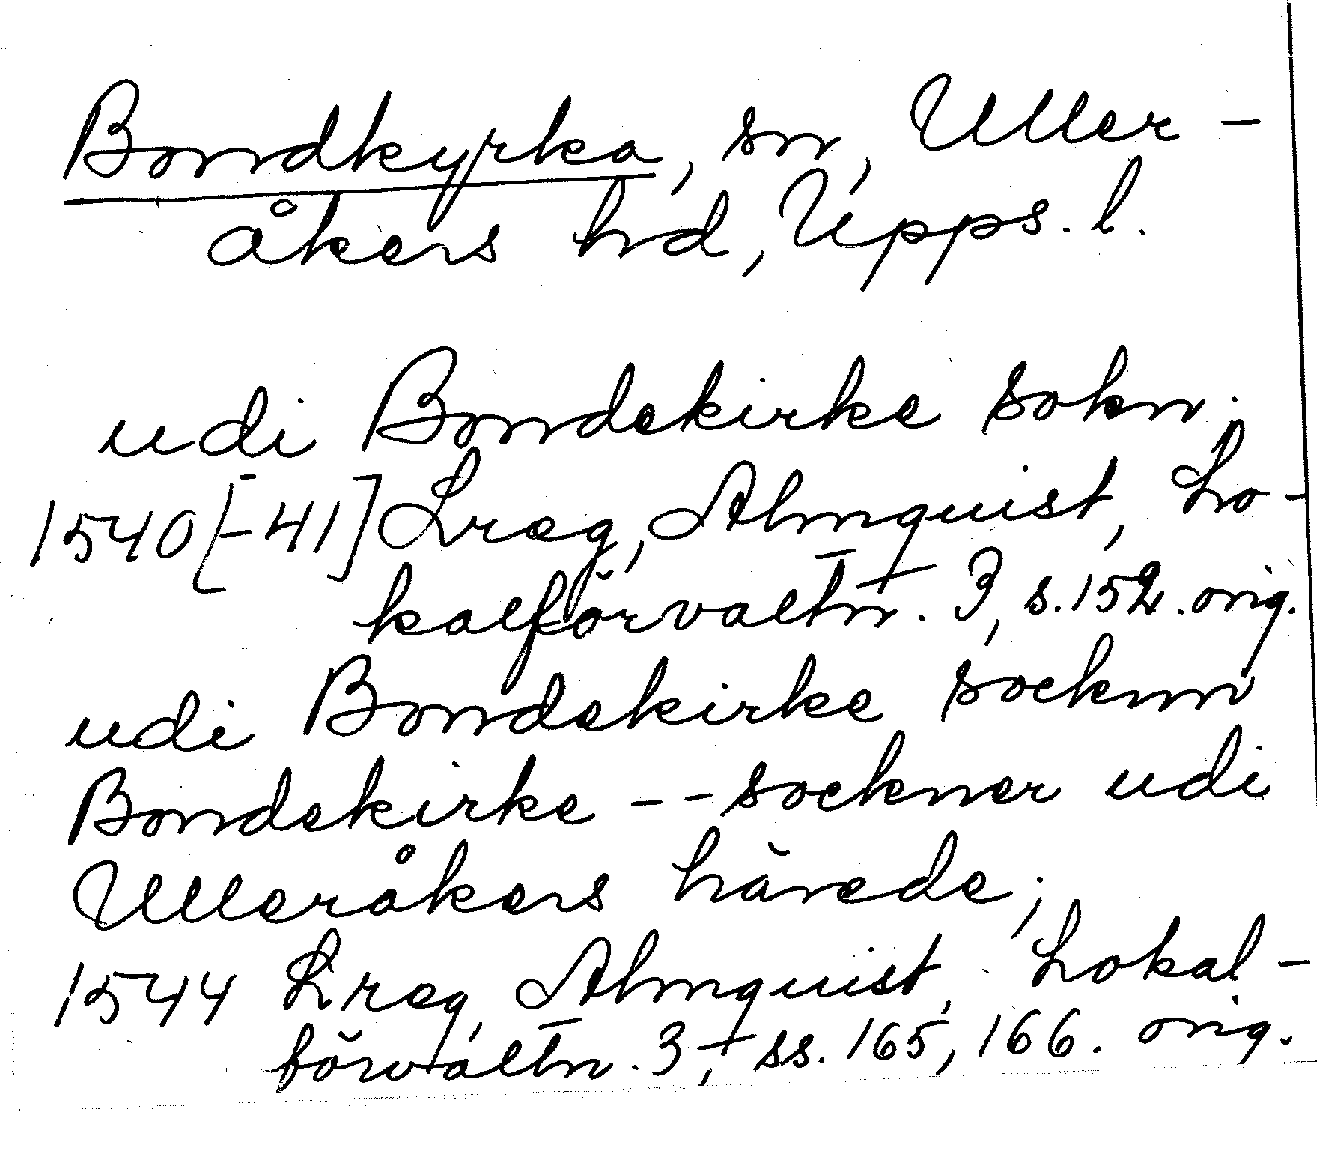 Bondkyrka, sn, Uller-
åkers hd, Upps. l.
udi Bondekirke sokn.
1540[-41] Lreg, Almquist, Lo-
kalförvaltn. 3, s. 152. orig.
udi Bondekirke socknn
Bondekirke -- sockner udi
Ulleråkers härede;
1544 Lreg, Almquist, Lokal-
förvaltn. 3, ss. 165, 166. orig.